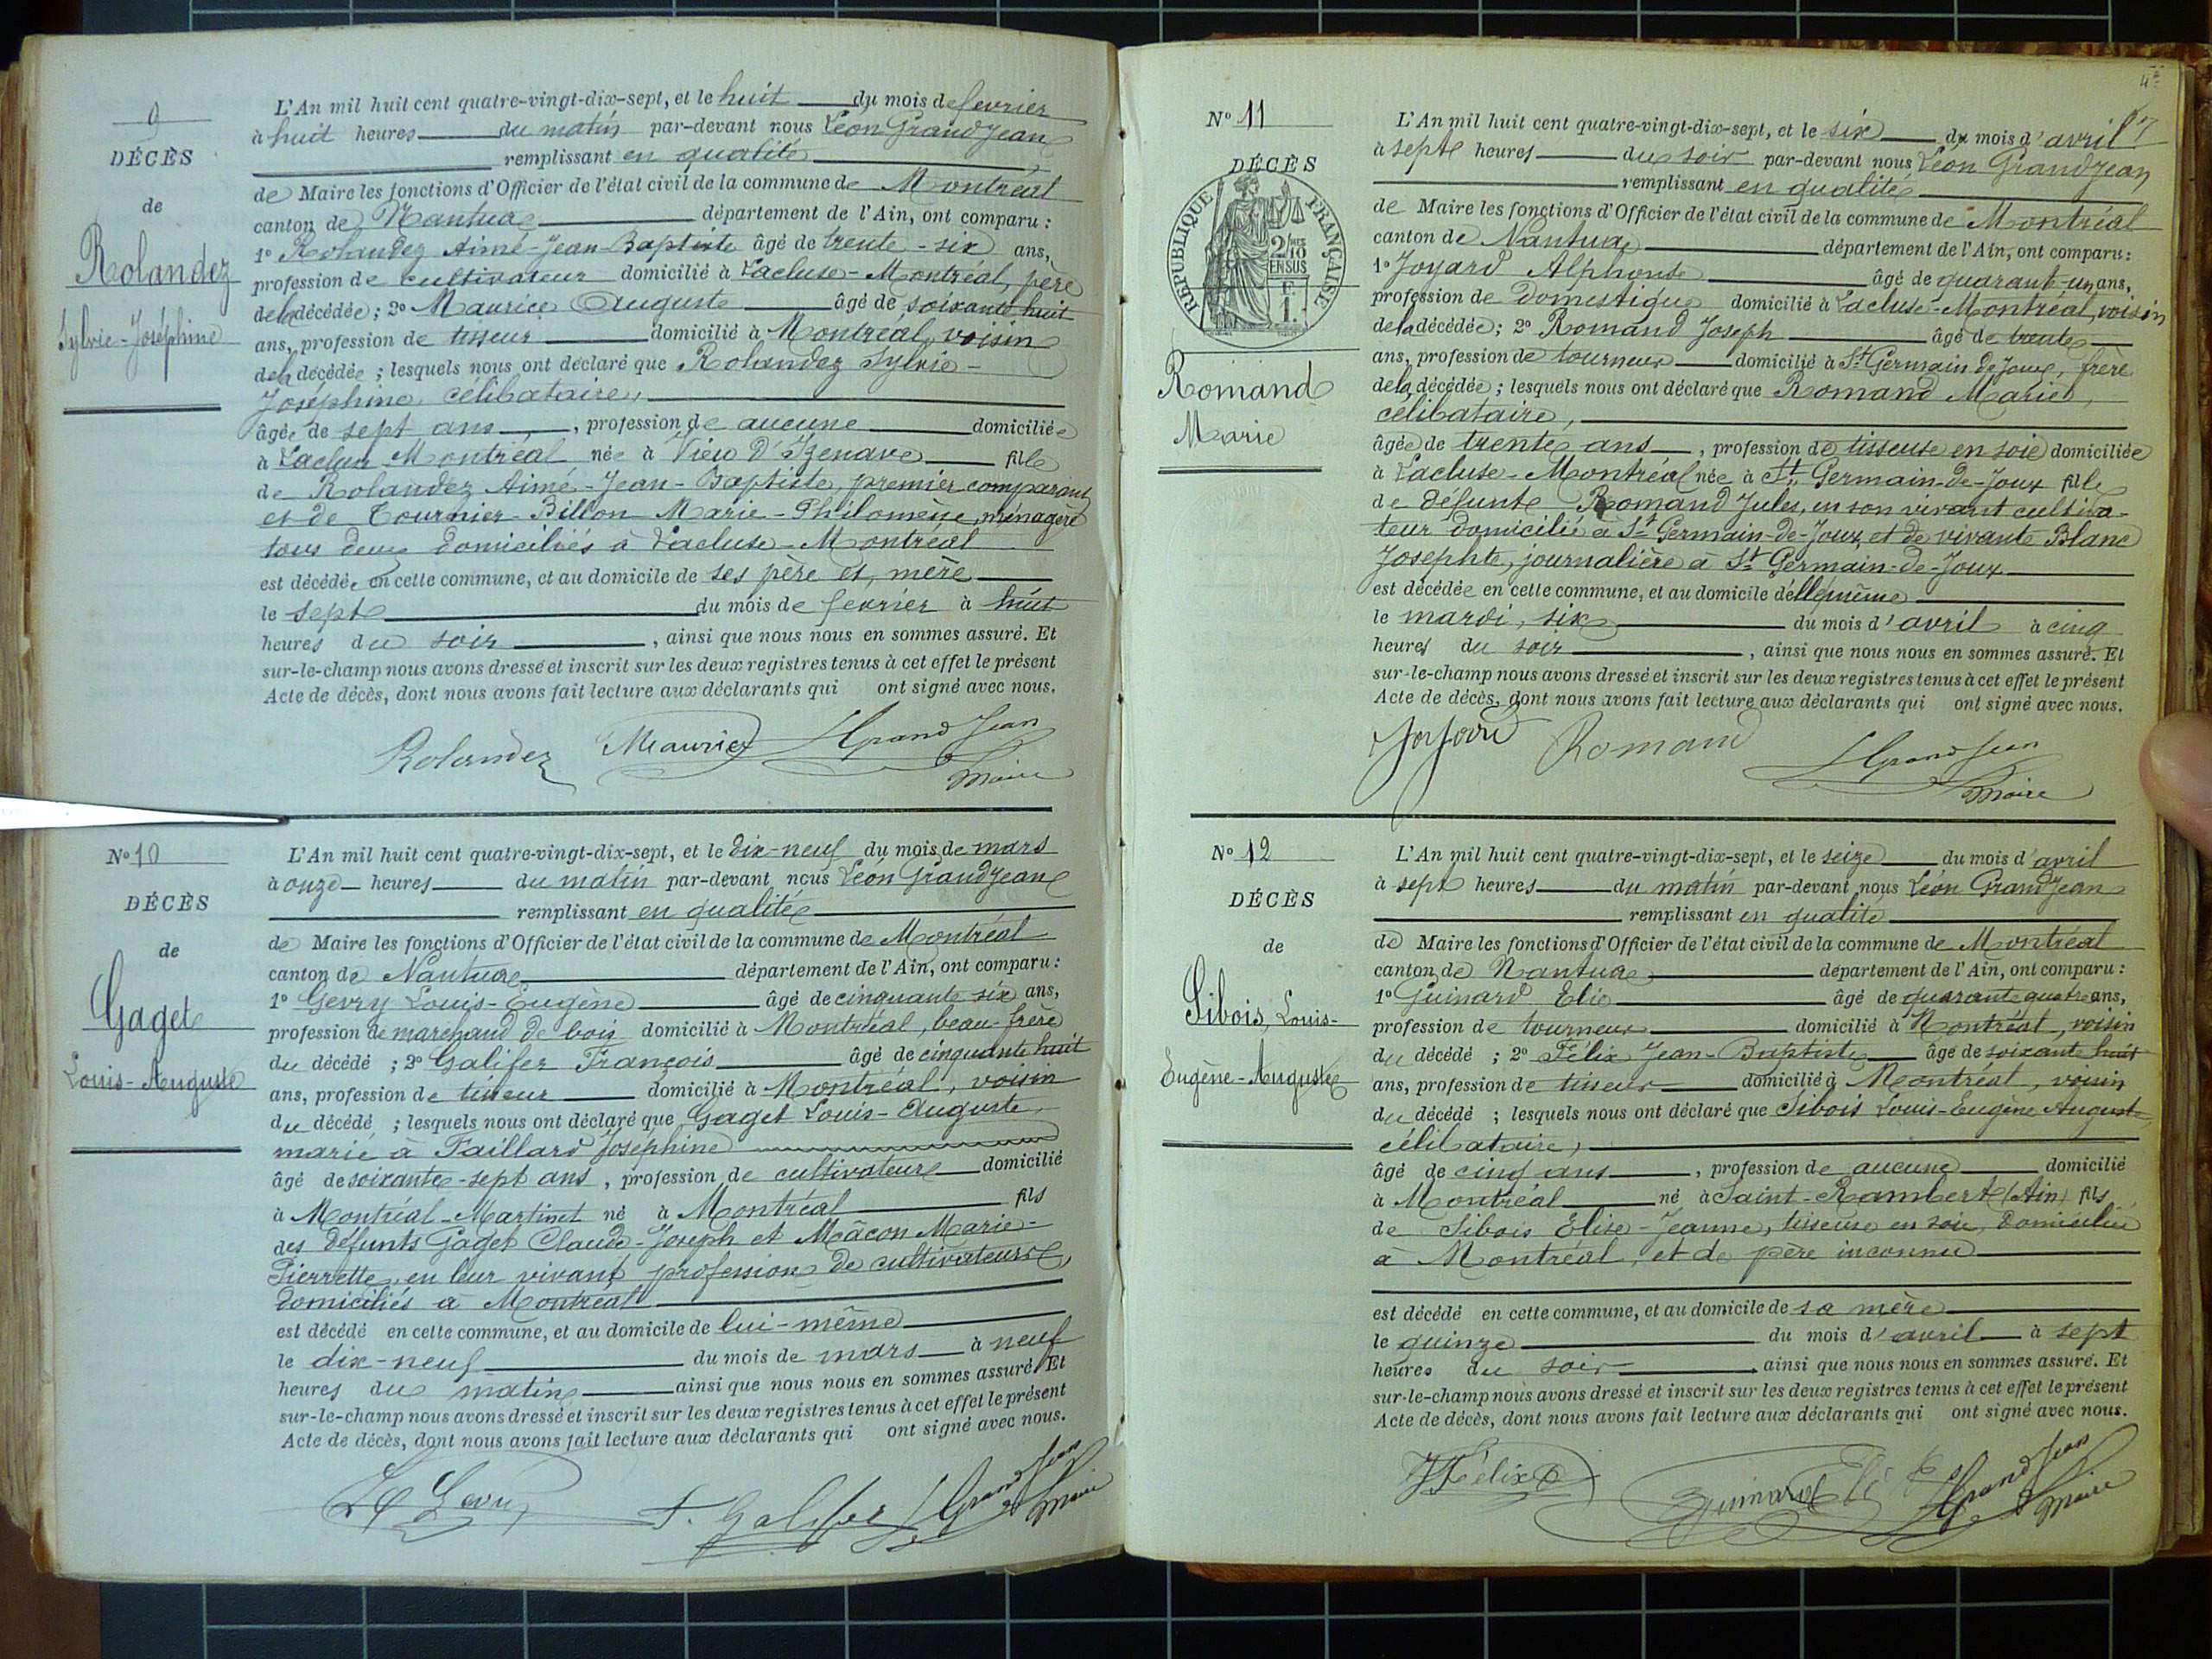 9
DÉCÈS
de
Rolandez
Sylvie-Joséphine
L'An mil huit cent quatre-vingt-dix-sept, et le huit du mois de fevrier
à huit heures du matin par-devant nous Léon Grandjean
remplissant en qualité
de Maire les fonctions d'Officier de l'état civil de la commune de Montréal
canton de Nantua département de l'Ain, ont comparu :
1º Rolandez Aimé-Jean-Baptiste âgé de trente-six ans,
profession de cultivateur domicilié à Lacluse-Montréal, père
de la décédée ; 2º Maurice Auguste âgé de soixante huit
ans, profession de tisseur domicilié à Montréal, voisin
de la décédée ; lesquels nous ont déclaré que Rolandez Sylvie-
Joséphine célibataire,
âgée de sept ans, profession de aucune domiciliée
à Lacluse Montréal née à Vieu d'Izenave fille
de Rolandez Aimé-Jean-Baptiste, premier comparant
et de Tournier-Billon Marie-Philomène, ménagère
tous deux domiciliés à Lacluse-Montréal
est décédée en cette commune, et au domicile de ses père et mère
le sept du mois de fevrier à huit
heures du soir, ainsi que nous nous en sommes assuré. Et
sur-le-champ nous avons dressé et inscrit sur les deux registres tenus à cet effet le présent
Acte de décès, dont nous avons fait lecture aux déclarants qui ont signé avec nous.
Rolandez Maurice LGrandJean
Maire
Nº 10
DÉCÈS
de
Gaget
Louis-Auguste
L'An mil huit cent quatre-vingt-dix-sept, et le dix-neuf du mois de mars
à onze heures du matin par-devant nous Léon Grandjean
remplissant en qualité
de Maire les fonctions d'Officier de l'état civil de la commune de Montréal
canton de Nantua département de l'Ain, ont comparu :
1º Gevry Louis-Eugène âgé de cinquante six ans,
profession de marchand de bois domicilié à Montréal, beau-frère
du décédé ; 2º Galifer François âgé de cinquante huit
ans, profession de tisseur domicilié à Montréal, voisin
du décédé ; lesquels nous ont déclaré que Gaget Louis-Auguste,
marié à Faillard Joséphine
âgé de soixante-sept ans, profession de cultivateur domicilié
à Montréal-Martinet né à Montréal fils
des défunts Gaget Claude-Joseph et Mâcon Marie-
Pierrette, en leur vivant profession de cultivateurs,
domiciliés à Montréal
est décédé en cette commune, et au domicile de lui-même
le dix-neuf du mois de mars à neuf
heures du matin ainsi que nous nous en sommes assuré. Et
sur-le-champ nous avons dressé et inscrit sur les deux registres tenus à cet effet le présent
Acte de décès, dont nous avons fait lecture aux déclarants qui ont signé avec nous.
Gevry F. Galifer LGrandJean
Maire
Nº 11
DÉCÈS
RÉPUBLIQUE FRANÇAISE
2/10
EN SUS
F.
1.
Romand
Marie
L'An mil huit cent quatre-vingt-dix-sept, et le six du mois d'avril
à sept heures du soir par-devant nous Léon Grandjean
remplissant en qualité
de Maire les fonctions d'Officier de l'état civil de la commune de Montréal
canton de Nantua département de l'Ain, ont comparu :
1º Joyard Alphonse âgé de quarant-un ans,
profession de Domestique domicilié à Lacluse-Montréal, voisin
de la décédée ; 2º Romand Joseph âgé de trente
ans, profession de tourneur domicilié à St Germain de Joux, frère
de la décédée ; lesquels nous ont déclaré que Romand Marie,
célibataire,
âgée de trente ans, profession de tisseuse en soie domiciliée
à Lacluse-Montréal née à St Germain-de-Joux fille
de défunt Romand Jules, en son vivant cultiva-
teur domicilié à St Germain-de-Joux, et de vivante Blanc
Josephte, journalière à St Germain-de-Joux
est décédée en cette commune, et au domicile d'ellemême
le mardi, six du mois d'avril à cinq
heures du soir, ainsi que nous nous en sommes assuré. Et
sur-le-champ nous avons dressé et inscrit sur les deux registres tenus à cet effet le présent
Acte de décès, dont nous avons fait lecture aux déclarants qui ont signé avec nous.
Romand LGrandJean
Maire
Nº 12
DÉCÈS
de
Sibois, Louis-
Eugène-Auguste
L'An mil huit cent quatre-vingt-dix-sept, et le seize du mois d'avril
à sept heures du matin par-devant nous Léon GrandJean
remplissant en qualité
de Maire les fonctions d'Officier de l'état civil de la commune de Montréal
canton de Nantua département de l'Ain, ont comparu :
1º Guinard Elie âgé de quarante quatre ans,
profession de tourneur domicilié à Montréal, voisin
du décédé ; 2º Félix Jean-Baptiste âgé de soixante huit
ans, profession de tisseur domicilié à Montréal, voisin
du décédé ; lesquels nous ont déclaré que Sibois Louis-Eugène Auguste,
célibataire,
âgé de cinq ans, profession de aucune domicilié
à Montréal né à Saint-Rambert (Ain) fils
de Sibois Elise-Jeanne, tisseuse en soie, domiciliée
à Montréal, et de père inconnu
est décédé en cette commune, et au domicile de sa mère
le quinze du mois d'avril à sept
heures du soir ainsi que nous nous en sommes assuré. Et
sur-le-champ nous avons dressé et inscrit sur les deux registres tenus à cet effet le présent
Acte de décès, dont nous avons fait lecture aux déclarants qui ont signé avec nous.
Félix Guinard Elie LGrandJean
Maire